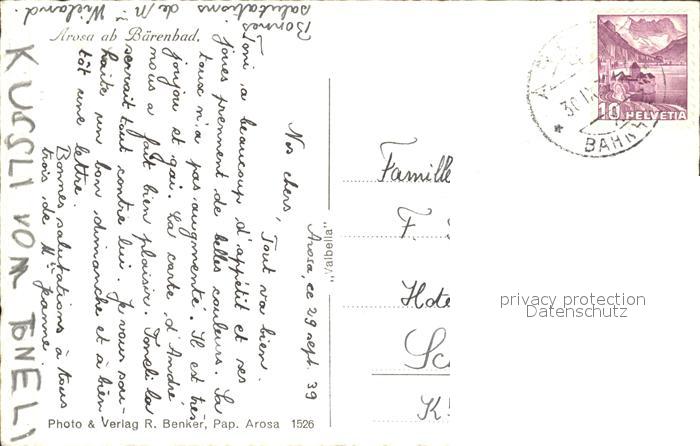 Arosa ab Bärenbad.
"Valbella"
Arosa, ce 29 sept. 39
Nos chers,
Tout va bien.
Toni a beaucoup d'appétit et ses
joues prennent de belles couleurs. Sa
toux n'a pas augmenté. Il est très
joyeux et gai. La carte d'André
nous a fait bien plaisir. Toneli la
serrait tout contre lui. Je vous sou-
haite un bon dimanche et à bien-
tôt une lettre.
Bonnes salutations à tous
trois de Mlle Jeanne.
Bonnes
salutations de Mr Wieland.
KUSSLI VOM TONELI
Photo & Verlag R. Benker, Pap. Arosa 1526
Famille
F.
Hote
Sc
K
10 HELVETIA
30. IX
BAHN
privacy protection
Datenschutz